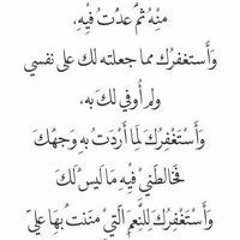 مِنْهُ ثُمَّ عُدْتُ فِيْهِ،
وَأَستغفِرُكَ مما جعلته لك على نفسي
ولم أُوفي لكَ به،
وَأَسْتَغْفِرُكَ لِمَا أَرَدْتُ بِهِ وَجهَكَ
فَخَالطَنِي فِيْهِ مَا لَيسَ لَكَ
وَأَسْتَغْفِرُكَ لِلنِّعَمِ الَّتِيْ مَنَنتَ بِهَا عَلَيَّ